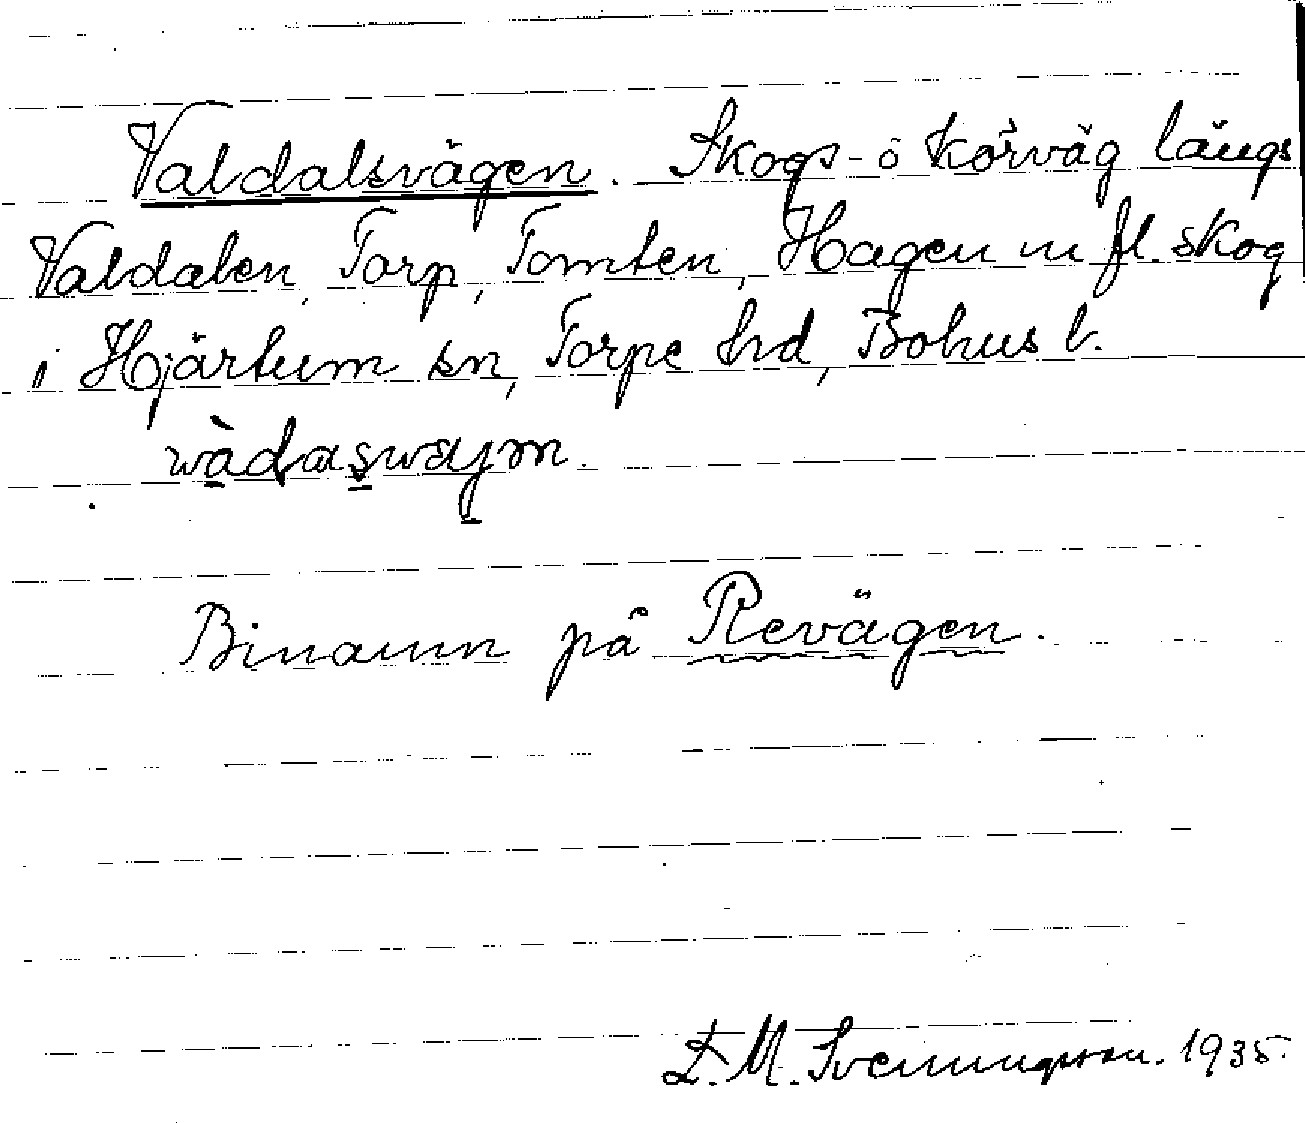 Valdalsvägen. Skogs- o körväg längs
Valdalen, Torp, Tomten, Hagen m fl. skog
i Hjärtum sn, Torpe hd, Bohus l.
wàdaswäjm.
Binamn på Revägen.
L. M. Svenungsson. 1935.